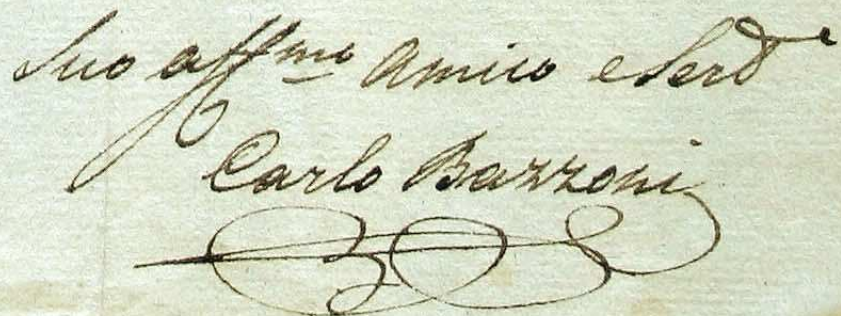 Suo aff.mo Amico e Serv.e
Carlo Bazzoni